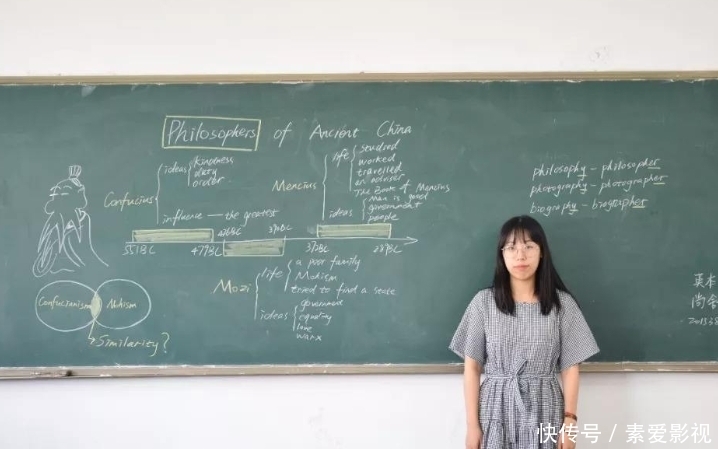 Philosophers of Ancient China
Confucius
ideas
kindness
duty
order
influence — the greatest
Mencius
life
studied
worked
travelled
an adviser
The Book of Mencius
ideas
Man is good
government
people
551BC
479BC
372BC
Mozi
life
a poor family
Mohism
tried to find a state
ideas
government
equality
love
war x
Confucianism
Mohism
Similarity?
philosophy - philosopher
photography - photographer
biography - biographer
快传号 / 素爱影视